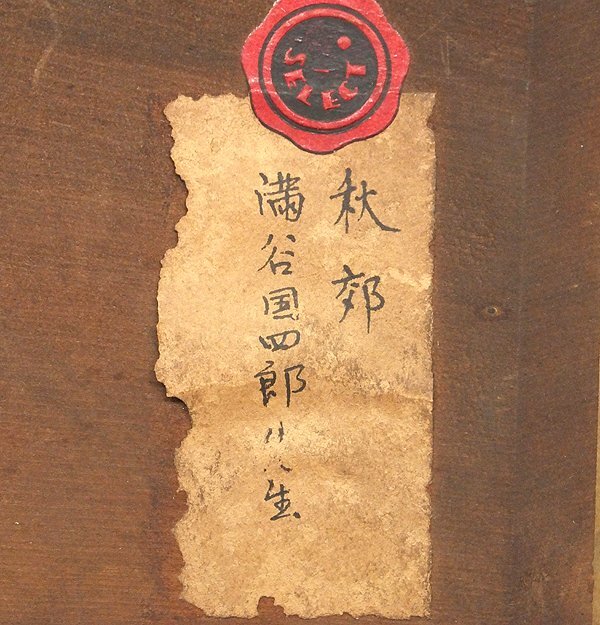 秋郊
満谷国四郎先生